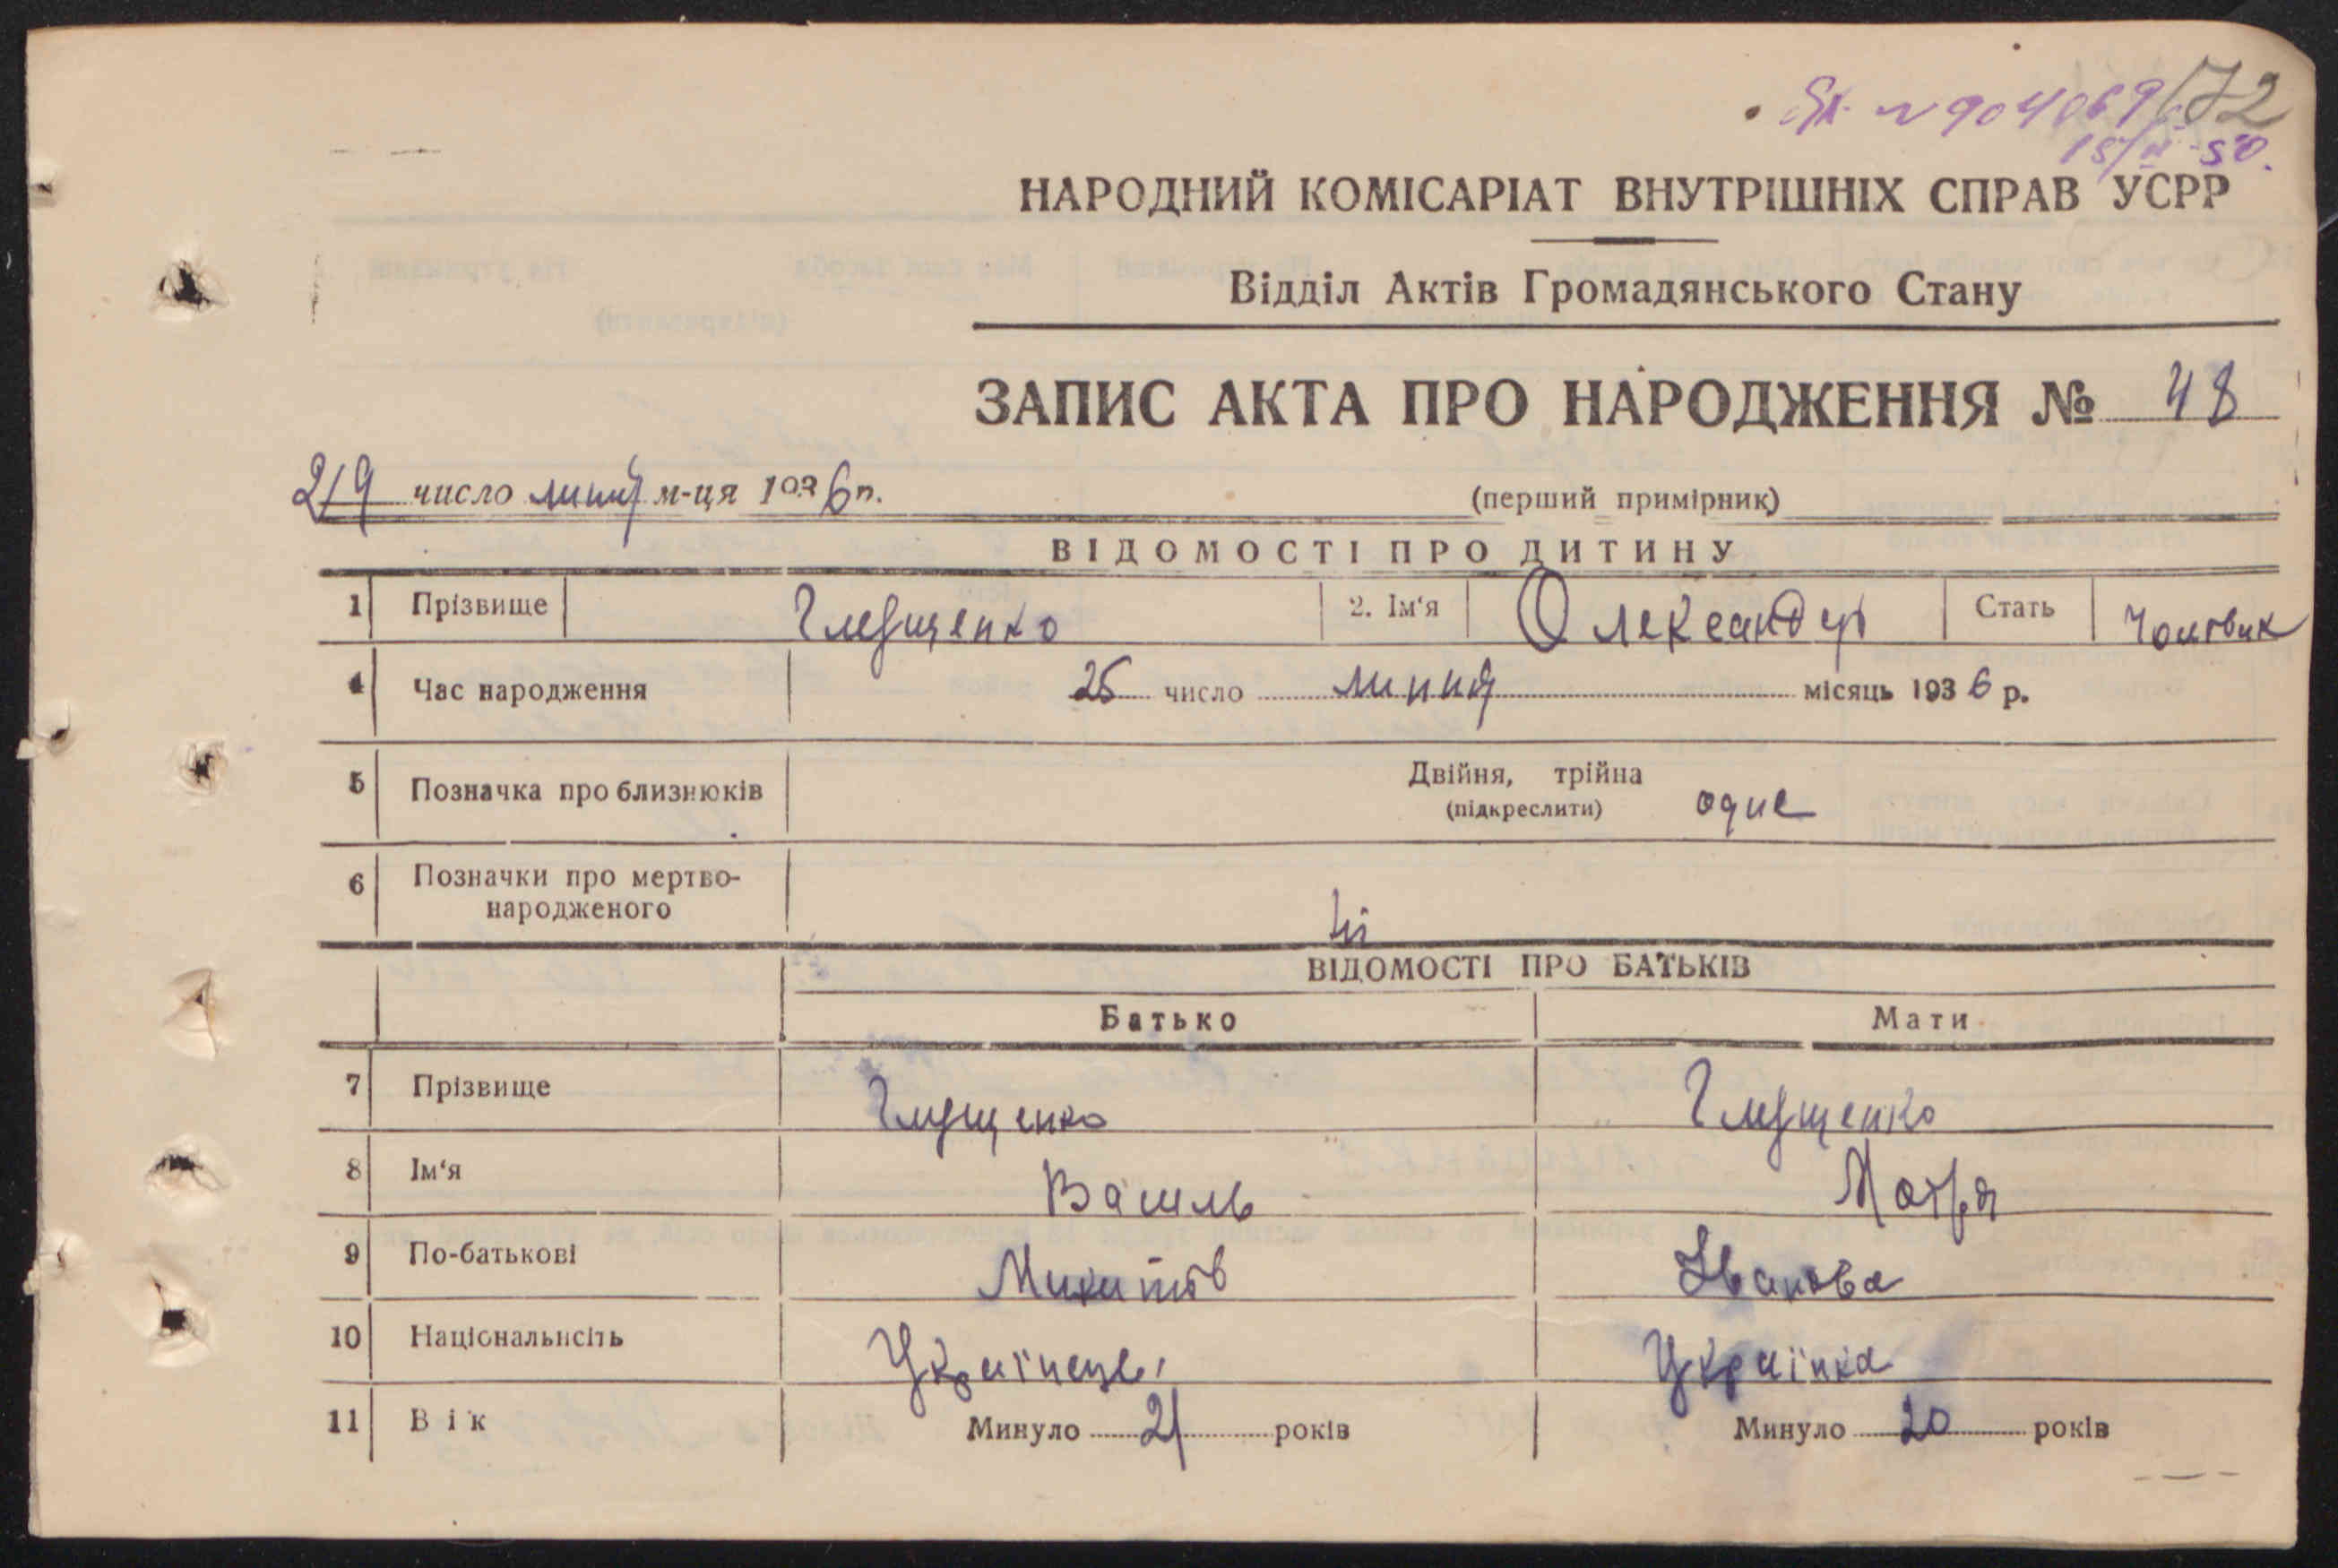 172
15/II-50.
НАРОДНИЙ КОМІСАРІАТ ВНУТРІШНІХ СПРАВ УСРР
Відділ Актів Громадянського Стану
ЗАПИС АКТА ПРО НАРОДЖЕННЯ № 48
29 число липня м-ця 1936 р.
(перший примірник)
ВІДОМОСТІ ПРО ДИТИНУ
1 Прізвище Глущенко 2. Ім'я Олександр Стать Чоловик
4 Час народження 25 число липня місяць 1936 р.
5 Позначка про близнюків Двійня, трійна
(підкреслити) одне
6 Позначки про мертво-
народженого Ні
ВІДОМОСТІ ПРО БАТЬКІВ
Батько Мати
7 Прізвище Глущенко Глущенко
8 Ім'я Василь Мотря
9 По-батькові Микитов Іванова
10 Національнсіть Українець Українка
11 Вік Минуло 21 років Минуло 20 років